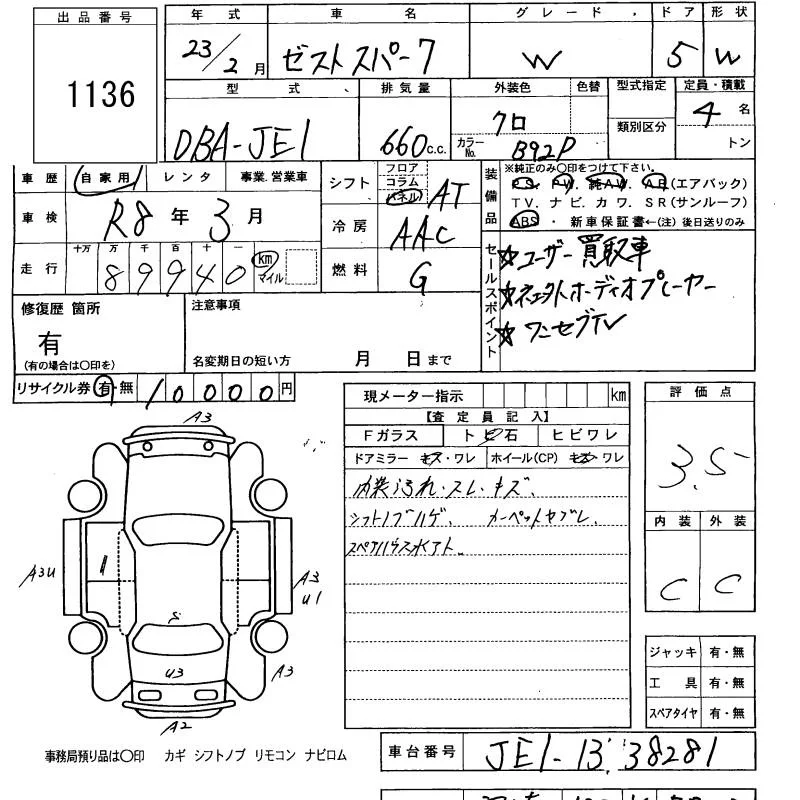 出品番号
1136
年式 車名 グレード ドア 形状
23/2月 ゼスト スパーク W 5 W
型式 排気量 外装色 色替 型式指定 定員・積載
DBA-JE1 660c.c. クロ カラーNo. B92P 類別区分 4名 トン
車歴 自家用 レンタ 事業.営業車
シフト フロア コラム パネル AT
車検 R8年3月
冷房 AAC
走行 十万 万 千 百 十 一 89940 km マイル
燃料 G
装備品 ※純正のみ〇印をつけて下さい。
P.S. P.W. 純A.W. A.B(エアバック)
TV. ナビ. カワ. SR(サンルーフ)
ABS ・ 新車保証書←(注)後日送りのみ
セールスポイント
☆ユーザー買取車
オーディオプレーヤー
☆ワンセグTV
修復歴 箇所
有
(有の場合は〇印を)
注意事項
名変期日の短い方 月 日まで
リサイクル券 有・無 10000円
現メーター指示 km
【査定員記入】
Fガラス トビ石 ヒビワレ
ドアミラー キズ・ワレ ホイール(CP) キズ・ワレ
内装汚れ・スレ・キズ.
シフトノブハゲ. カーペットヤブレ.
スペアハウス水アト.
評価点
3.5
内装 外装
C C
ジャッキ 有・無
工具 有・無
スペアタイヤ 有・無
A3
A3U
A3
U1
S
U3
A3
A2
事務局預り品は〇印 カギ シフトノブ リモコン ナビロム
車台番号 JE1-1338281